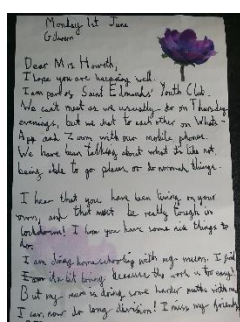 Monday 1st June
Gilwern
Dear Mrs Howorth,
I hope you are keeping well.
I am part of Saint Edmunds' Youth Club.
We can't meet as we usually do on Thursday
evenings, but we chat to each other on Whats-
App and Zoom with our mobile phones.
We have been talking about what it's like not
being able to go places or do normal things.
I hear that you have been living on your
own, and that must be really tough in
lockdown! I hope you have some nice things to
do.
I am doing homeschooling with my mum. I find
it a bit boring because the work is too easy!
But my mum is doing some harder maths with me
I can now do long division! I miss my friends